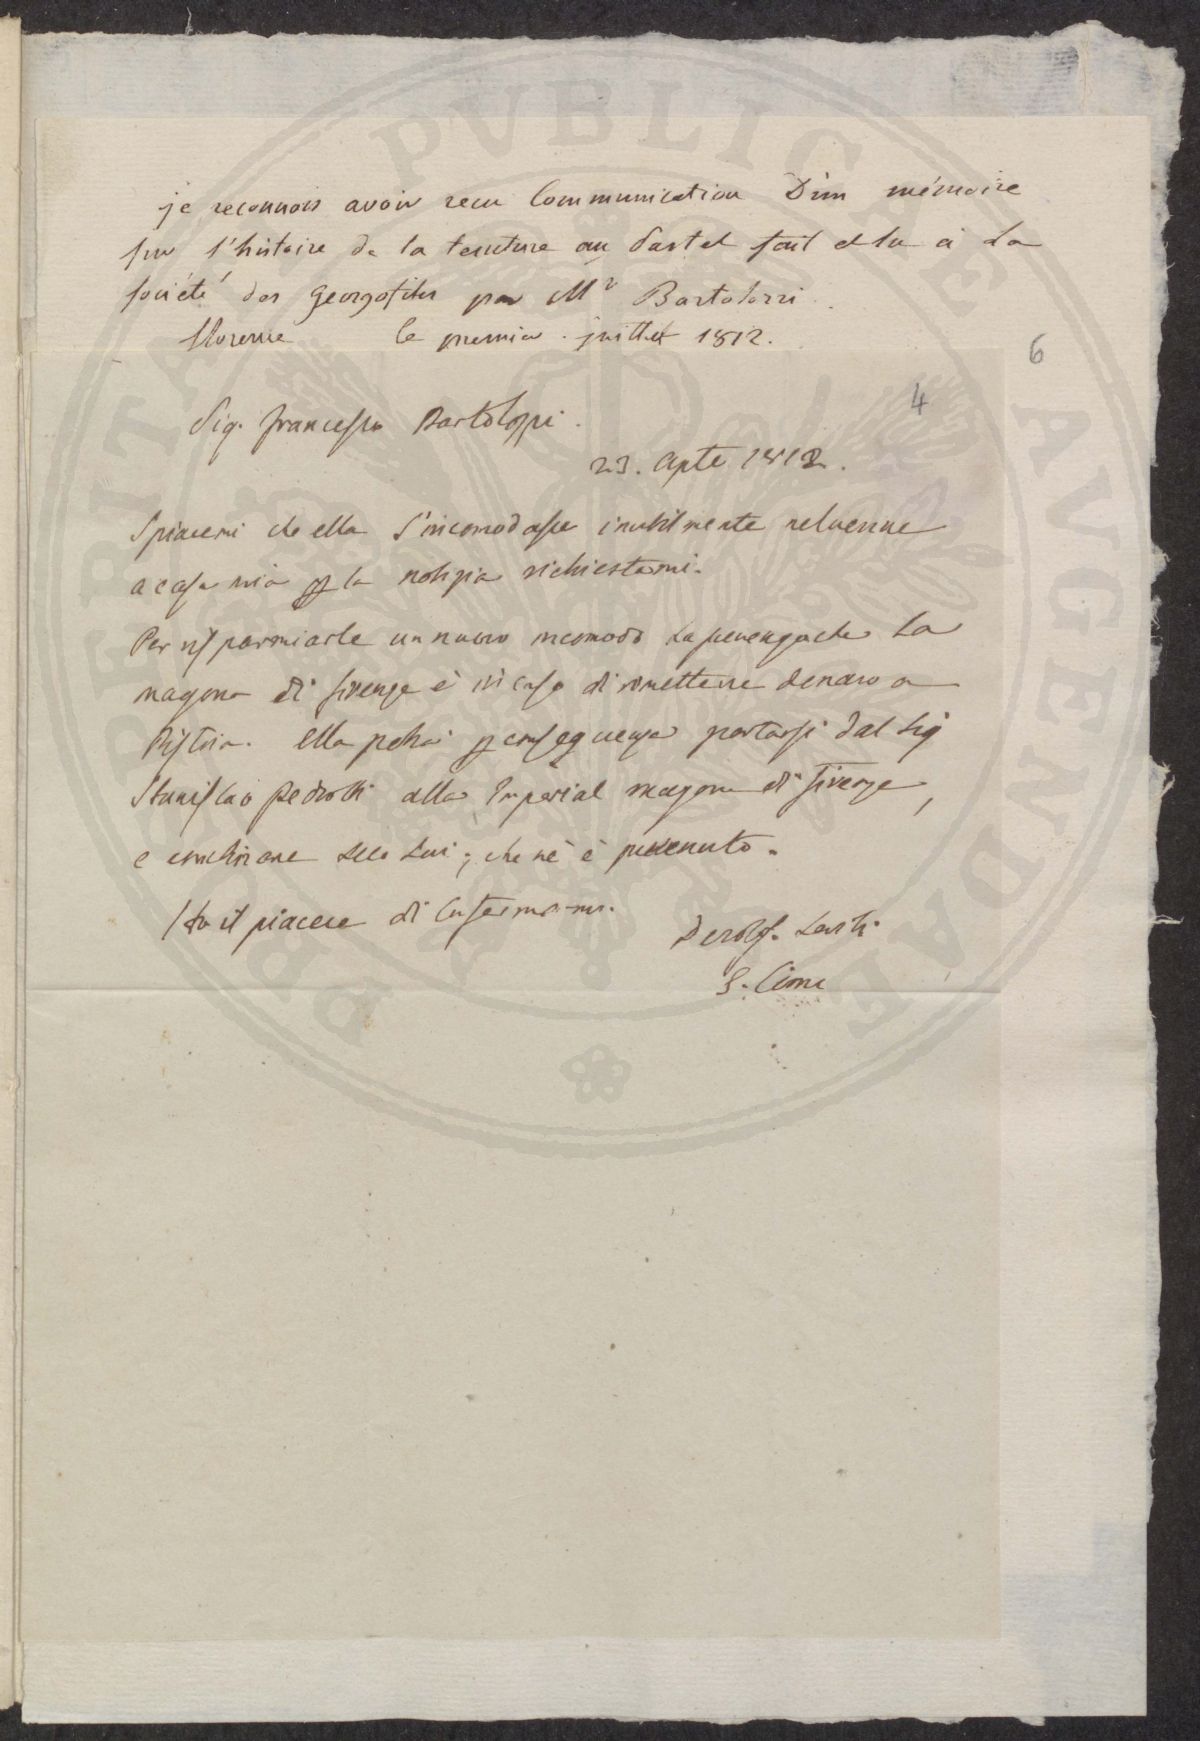 je reconnois avoir recu Communication D'un mémoire
sur l'histoire de la teinture au Pastel fait et lu a La
société des Georgofiles par Mr Bartolozzi.
Florence le premier juillet 1812.
6
4
Sig. Francesco Bartolozzi.
23. Aple 1812.
Spiacemi che ella s'incomodasse inutilmente nel venire
a casa mia p la notizia richiestami.
Per risparmiarle un nuovo incomodo La prevengo che La
magona di Firenze è in caso di rimettere denaro a
Pistoia. Ella potrà p conseguenza portarsi dal Sig
Stanislao Pedrotti alla Imperial magona di Firenze,
e combinare seco Lui; che nè è prevenuto.
Ho il piacere di Confermarmi.
S. Cima
PVBLICAE
AVGENDAE
PROSPERITATI